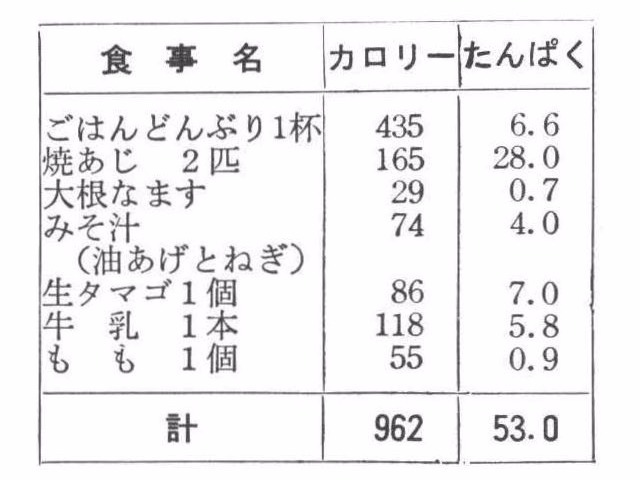 食事名 カロリー たんぱく
ごはんどんぶり1杯 435 6.6
焼あじ 2匹 165 28.0
大根なます 29 0.7
みそ汁 74 4.0
（油あげとねぎ）
生タマゴ1個 86 7.0
牛乳 1本 118 5.8
もも 1個 55 0.9
計 962 53.0